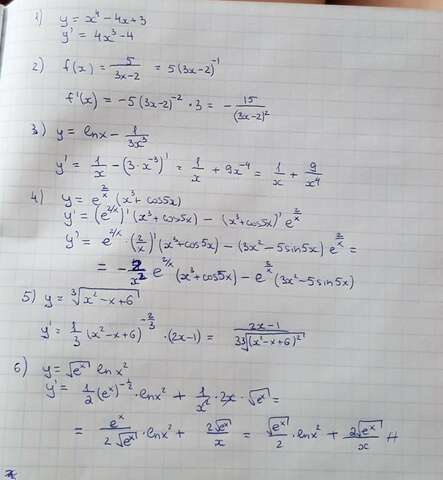 1) y = x⁴ - 4x + 3
y' = 4x³ - 4
2) f(x) = 5/(3x-2) = 5(3x-2)⁻¹
f'(x) = -5(3x-2)⁻² · 3 = - 15/(3x-2)²
3) y = lnx - 1/(3x³)
y' = 1/x - (3·x⁻³)' = 1/x + 9x⁻⁴ = 1/x + 9/x⁴
4) y = e^(2/x) (x³ + cos5x)
y' = (e^(2/x))' (x³ + cos5x) - (x³ + cos5x)' e^(2/x)
y' = e^(2/x) (2/x)' (x³ + cos5x) - (3x² - 5sin5x) e^(2/x) =
= - 2/x² e^(2/x) (x³ + cos5x) - e^(2/x) (3x² - 5sin5x)
5) y = ∛(x² - x + 6)
y' = 1/3 (x² - x + 6)^(-2/3) · (2x-1) = (2x-1)/(3∛(x²-x+6)²)
6) y = √(eˣ) lnx²
y' = 1/2 (eˣ)^(-1/2) · lnx² + 1/x² · 2x · √(eˣ) =
= eˣ/(2√(eˣ)) · lnx² + 2√(eˣ)/x = √(eˣ)/2 · lnx² + 2√(eˣ)/x